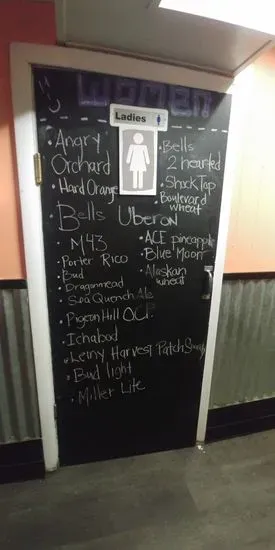 WOMEN
Ladies
• Angry
Orchard
• Hard Orange
• Bells
2 hearted
• Shock Top
• Boulevard
wheat
• Bells Uberon
• M43
• Porter Rico
• Bud
• Dragonmead
• Sea Quench Ale
• Pigeon Hill OCP
• Ichabod
• Leiny Harvest Patch Shandy
• Bud light
• Miller Lite
• ACE pineapple
• Blue Moon
• Alaskan
wheat